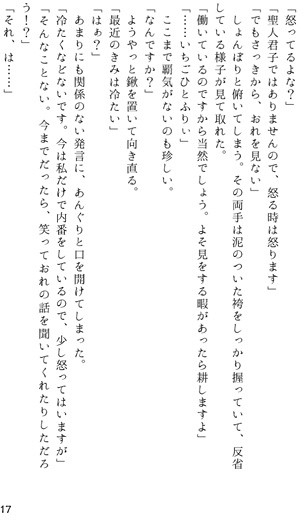 「怒ってるよな?」
「聖人君子ではありませんので、怒る時は怒ります」
「でもさっきから、おれを見ない」
しょんぼりと俯いてしまう。その両手は泥のついた袴をしっかり握っていて、反省
している様子が見て取れた。
「働いているのですから当然でしょう。よそ見をする暇があったら耕しますよ」
「……いちごひとふりぃ」
ここまで覇気がないのも珍しい。
「なんですか?」
ようやっと鍬を置いて向き直る。
「最近のきみは冷たい」
「はぁ?」
あまりにも関係のない発言に、あんぐりと口を開けてしまった。
「冷たくなどないです。今は私だけで内番をしているので、少し怒ってはいますが」
「そんなことない。今までだったら、笑っておれの話を聞いてくれたりしただろ
う!?」
「それ、は……」
17